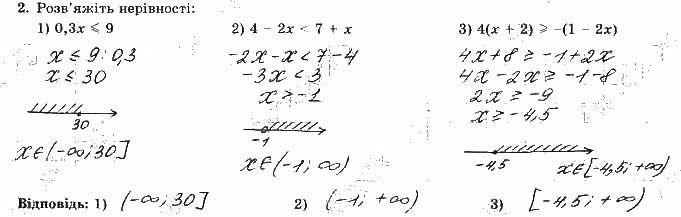 2. Розв'яжіть нерівності:
1) 0,3x ⩽ 9
x ≤ 9 : 0,3
x ≤ 30
30
x ∈ (-∞; 30]
2) 4 − 2x < 7 + x
-2x - x < 7 - 4
-3x < 3
x > -1
-1
x ∈ (-1; ∞)
3) 4(x + 2) ⩾ −(1 − 2x)
4x + 8 ≥ -1 + 2x
4x - 2x ≥ -1 - 8
2x ≥ -9
x ≥ -4,5
-4,5
x ∈ [-4,5; +∞)
Відповідь: 1) (-∞; 30] 2) (-1; +∞) 3) [-4,5; +∞)